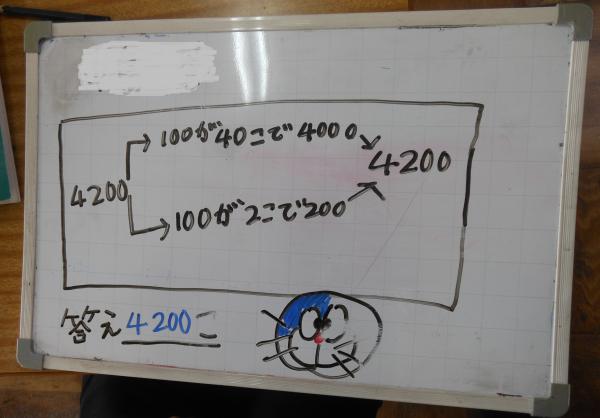 100が40こで4000
4200
4200
100が2こで200
答え4200こ